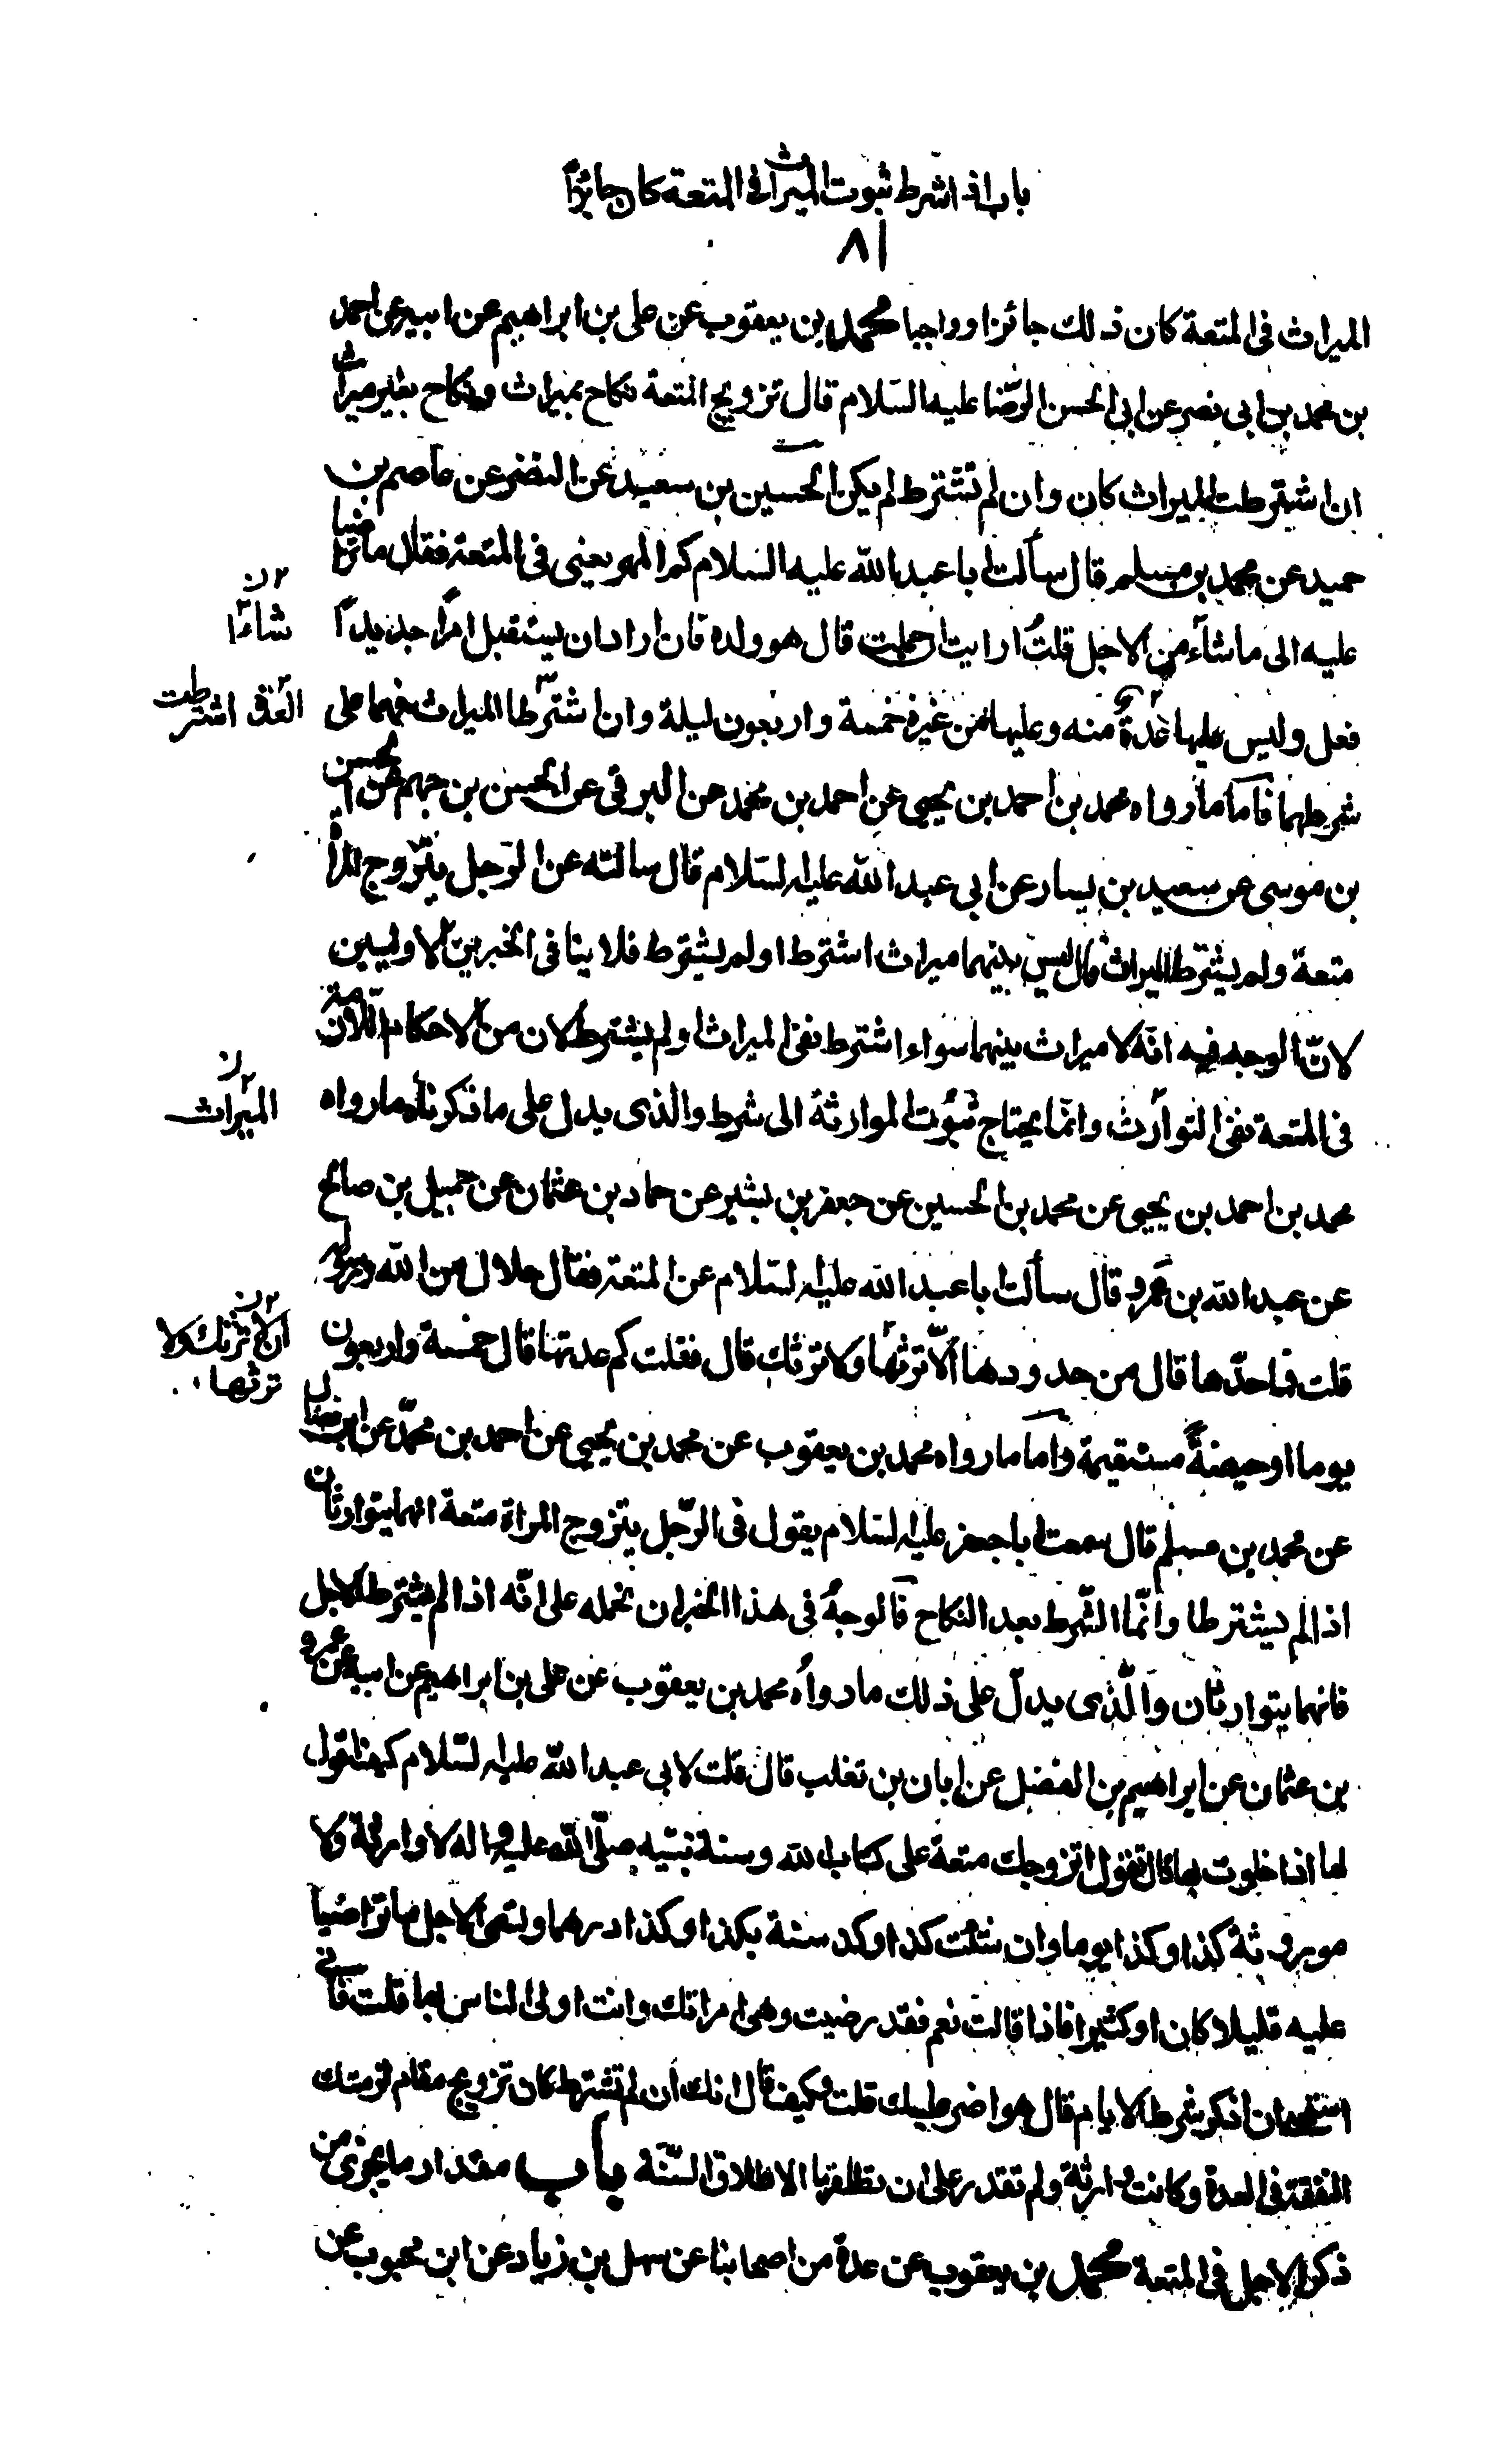 باب اذا شرط ثبوت الميراث فى المتعة كان جائزاً
٨١
الميراث فى المتعة كان ذلك جائزا وواجبا محمد بن يعقوب عن على بن ابراهيم عن ابيه عن احمد
بن محمد بن ابى نصر عن ابى الحسن الرّضا عليه السّلام قال تزويج المتعة نكاح بميراث ونكاح بغير ميراث
ان اشترطت الميراث كان وان لم تشترط لم يكن الحسين بن سعيد عن النضر عن عاصم بن
حميد عن محمد بن مسلم قال سألت ابا عبد الله عليه السلام كم المهر يعنى فى المتعة فقال ما تراضيا
عليه الى ما شاء من الاجل قلتُ ارايت ان حملت قال هو ولده فان اراد ان يستقبل امرًا جديدًا
شاءا
فعل وليس عليها عدةٌ منه وعليها من غيره خمسة واربعون ليلة وان اشترطا الميراث فهما على
العدة اشترطت
شرطهما فأما ما رواه محمد بن احمد بن يحيى عن احمد بن محمد عن البرقى عن الحسن بن جهم عن الحسن
بن موسى عن سعيد بن يسار عن ابى عبد الله عليه السّلام قال سالته عن الرّجل يتزّوج المرأة
متعة ولم يشترط الميراث قال ليس بينهما ميراث اشترط او لم يشترط فلا ينافى الخبرين الاوليين
لانّ الوجه فيه انّه لا ميراث بينهما سواء اشترط نفى الميراث او لم يشترط لان من الاحكام اللّازمة
فى المتعة نفى التوارث وانّما يحتاج ثبوت الموارثة الى شرط والذى يدل على ما ذكرناه ما رواه
الميراث
محمد بن احمد بن يحيى عن محمد بن الحسين عن جعفر بن بشير عن حماد بن عثمان عن جميل بن صالح
عن عبد الله بن عمرو قال سألت ابا عبد الله عليه السّلام عن المتعة فقال حلال من الله ورسوله
قلت فما حدّها قال من حدودها ألّا ترثها ولا ترثك قال فقلت كم عدتها قال خمسة واربعون
ان لا ترثك ولا
ترثها
يوما او حيضةً مستقيمة وأما ما رواه محمد بن يعقوب عن محمد بن يحيى عن احمد بن محمّد عن ابن فضال
عن محمد بن مسلم قال سمعت ابا جعفر عليه السّلام يقول فى الرّجل يتزوج المراة متعة انهما يتوارثان
اذا لم يشترطا وانّما الشّرط بعد النكاح فالوجهُ فى هذا الخبر ان نحمله على انّه اذا لم يشترط الاجل
فانهما يتوارثان والّذى يدلّ على ذلك ما رواه محمد بن يعقوب عن على بن ابراهيم عن ابيه عن عمرو
بن عثمان عن ابراهيم بن الفضل عن ابان بن تغلب قال قلت لابى عبد الله عليه السّلام كيف اقول
لها اذا خلوت بها قال تقول اتزوجك متعة على كتاب الله وسنة نبيّه صلّى الله عليه واله لا وارثة ولا
موروثة كذا وكذا يوما وان شئت كذا وكذ سنة بكذا وكذا درهما وتسمى الاجل ما تراضيا
عليه قليلا كان او كثيرا فاذا قالت نعم فقد رضيت وهى امراتك وانت اولى الناس بها قلت فانى
استحيى ان اذكر شرط الايام قال هو اضر عليك قلت وكيف قال انك ان لم تشترط كان تزويج مقام لزمتك
النفقة فى العدة وكانت وارثة ولم تقدر على ان تطلقها الا طلاق السّنّة باب مقدار ما يجزى من
ذكر الاجل فى المتعة محمد بن يعقوب عن عدة من اصحابنا عن سهل بن زياد عن ابن محبوب عن